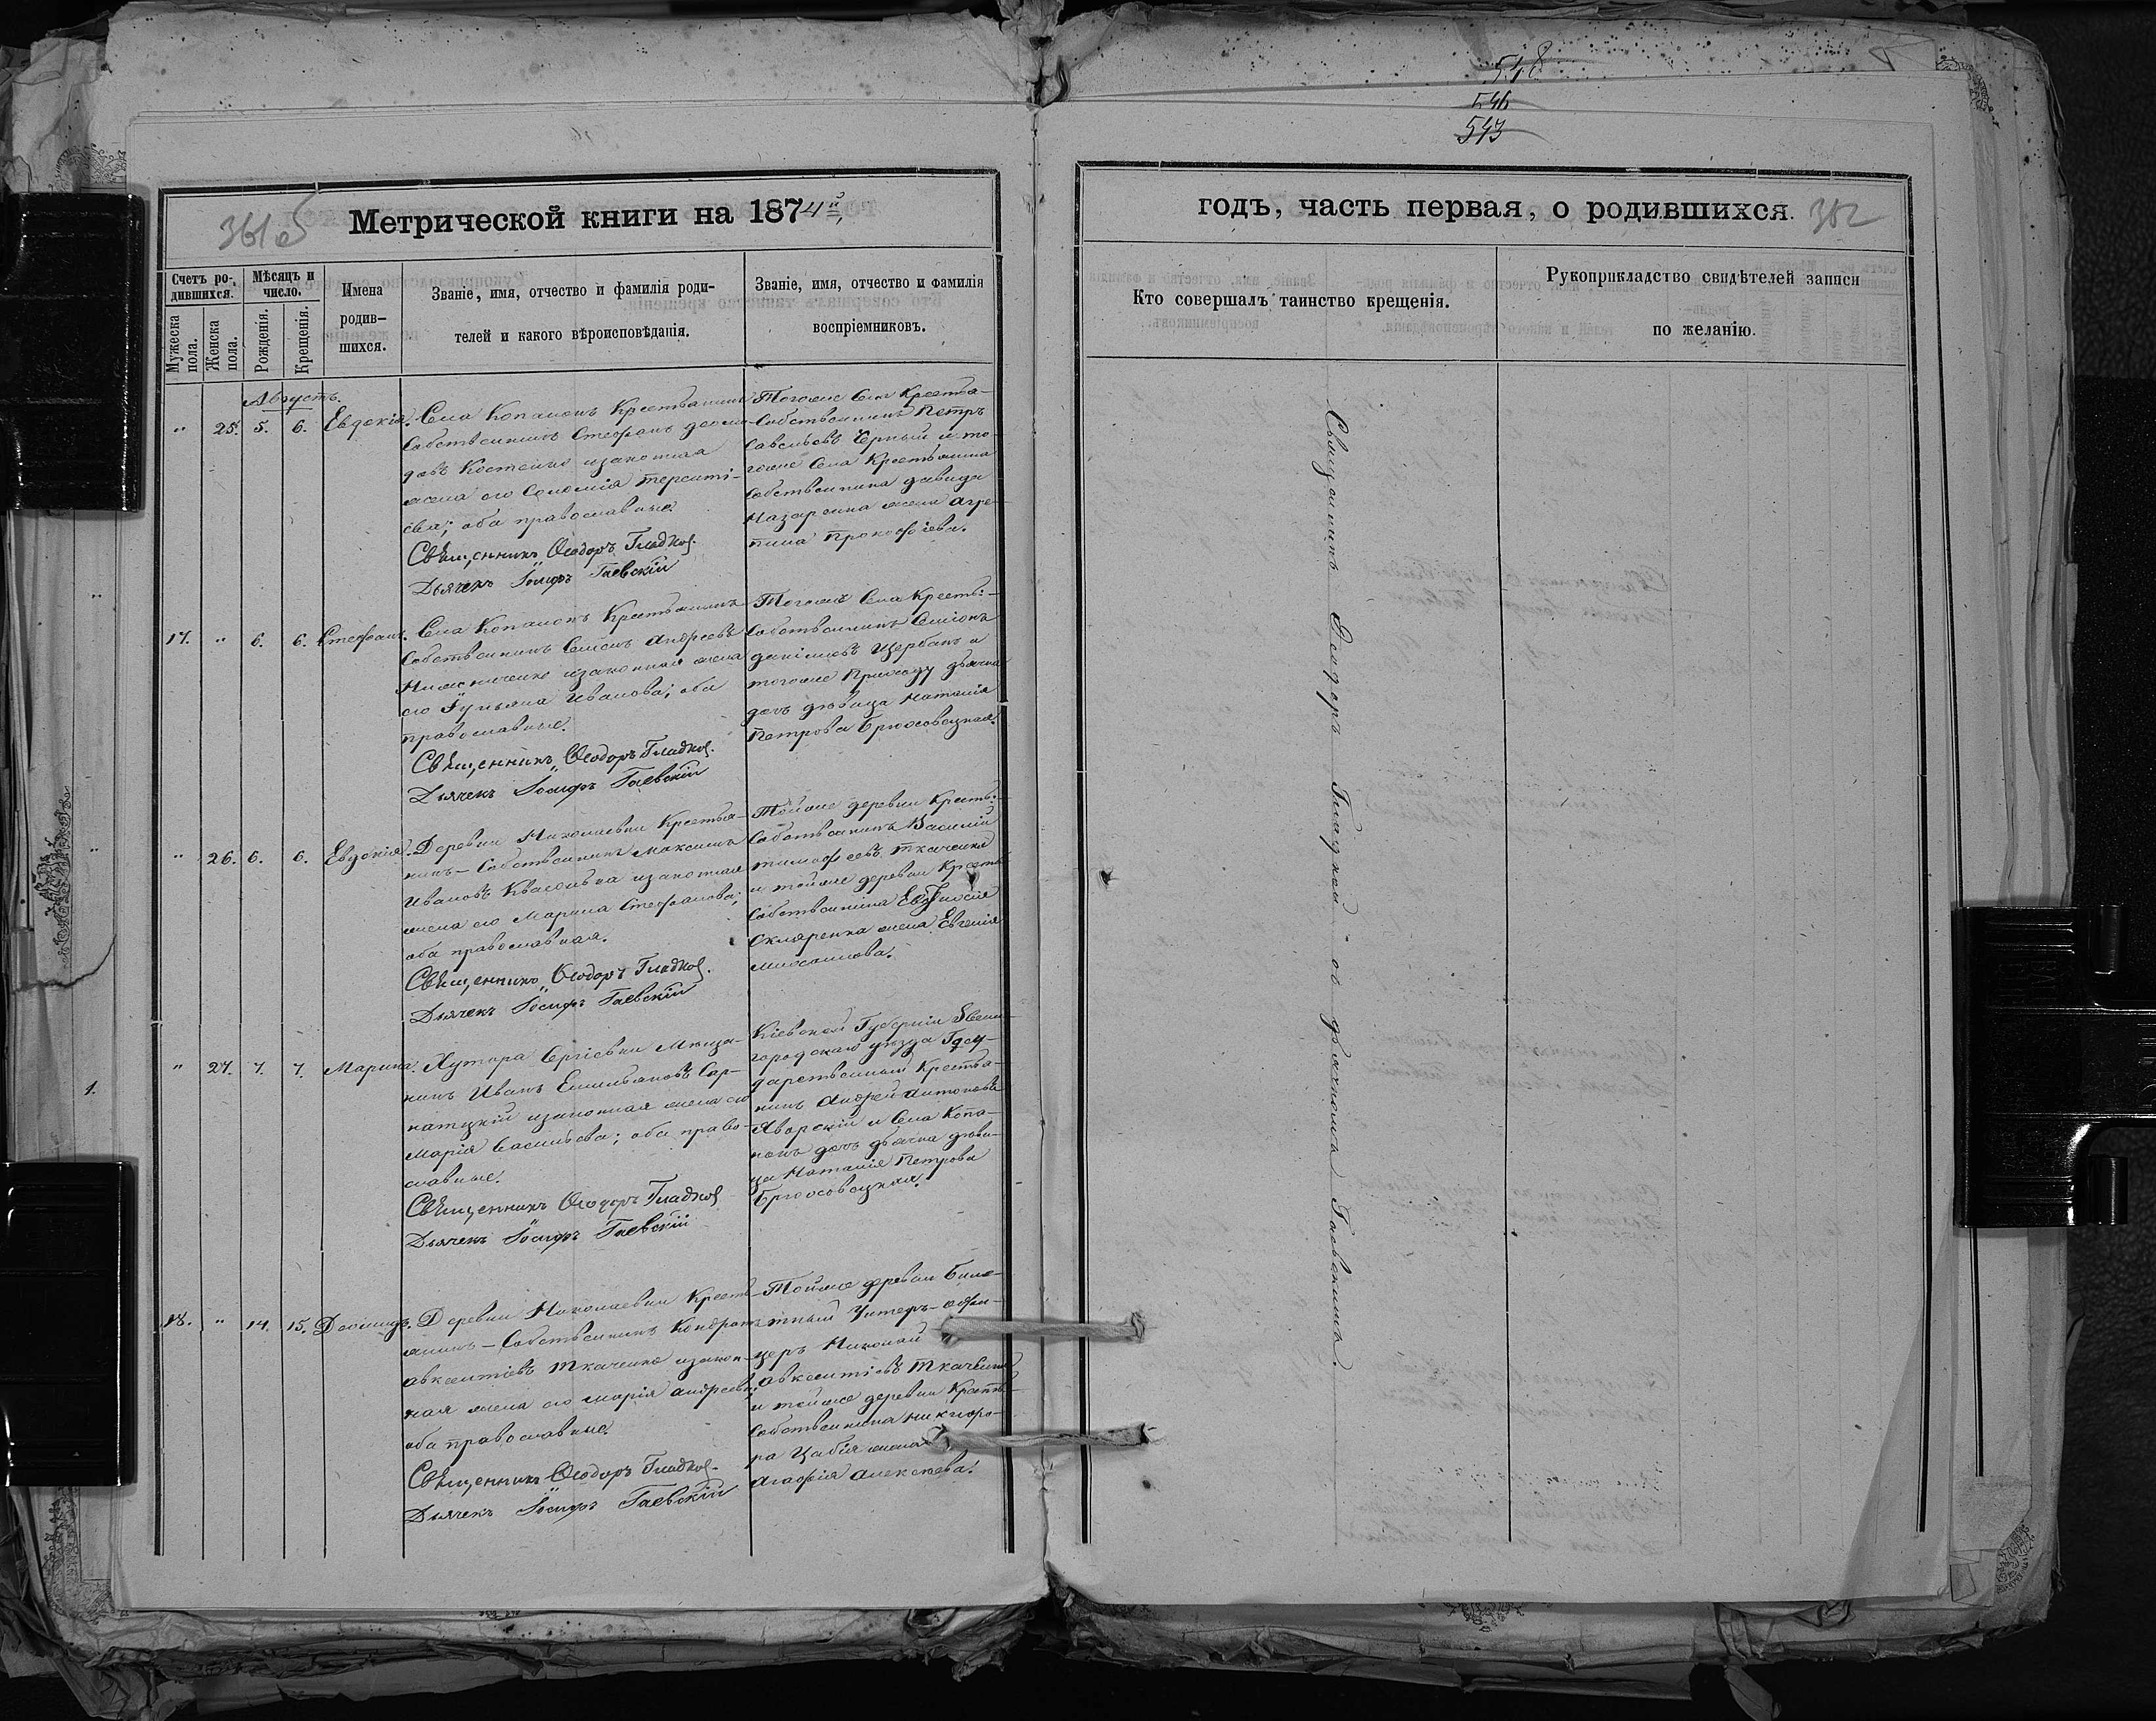 518
546
543
361 об
Метрической книги на 1874й
годъ, часть первая, о родившихся.
382
Счетъ ро-
дившихся.
Мужеска
пола.
Женска
пола.
Мѣсяцъ и
число.
Рожденія.
Крещенія.
Имена
родив-
шихся.
Званіе, имя, отчество и фамилія роди-
телей и какого вѣроисповѣданія.
Званіе, имя, отчество и фамилія
воспріемниковъ.
Кто совершалъ таинство крещенія.
Рукоприкладство свидѣтелей записи
по желанію.
Августъ.
" 25. 5. 6. Евдокія.
Села Копанокъ Крестьянинъ
Собственникъ Стефанъ
довъ Костенко изаконная
жена его Соломія Теренті-
ева; оба православные
Священникъ Ѳеодоръ Гладкій.
Дьячекъ Іосифъ Гаевскій
Тогоже Села Крестья-
Собственникъ Петръ
Савельевъ Черный и то-
гоже Села Крестьянина
Собственника Давида
Назаренка жена Агре-
пина Прокофіева.
17. " 6. 6. Стефанъ.
Села Копанокъ Крестьянинъ
Собственникъ Симонъ Андреевъ
изаконная жена
его Іульяна Иванова; оба
православные.
Священникъ Ѳеодоръ Гладкій.
Дьячекъ Іосифъ Гаевскій
Тогоже Села Кресть:-
Собственникъ Симіонъ
Даніиловъ Щербань и
тогоже Приходу дьячка
дочь дѣвица Наталія
Петрова Брюсовецкая.
" 26. 6. 6. Евдокія.
Деревни Николаевки Крестья-
нинъ - Собственникъ Максимъ
Ивановъ изаконная
жена его Марина Стефанова;
оба православная.
Священникъ Ѳеодоръ Гладкій.
Дьячекъ Іосифъ Гаевскій
Тойже деревни Кресть:-
Собственникъ Василій
Тимофеевъ Ткаченко
и тойже деревни Кресть:
Собственника
Скляренка жена Евгенія
" 27. 7. 7. Марина.
Хутора Сергіевки Мѣща-
нинъ Иванъ Емильяновъ Сар-
нацкій изаконная жена его
Марія Васильева; оба право-
славные.
Священникъ Ѳеодоръ Гладкій
Дьячекъ Іосифъ Гаевскій
Кіевской Губерніи Звени-
городскаго уѣзда Госу-
дарственный Крестья-
нинъ Андрей Антоновъ
Яворскій и Села Копа-
нокъ дочь дьячка дѣви-
ца Наталія Петрова
Брюсовецкая.
18. " 14. 15. Діомидъ.
Деревни Николаевки Кресть-
янинъ - Собственникъ Кондратъ
Авксентіевъ Ткаченко изакон-
ная жена его Марія Андреева;
оба православные
Священникъ Ѳеодоръ Гладкій.
Дьячекъ Іосифъ Гаевскій
Тойже деревни Биле-
тный Унтеръ-офи-
церъ Николай
Авксентіевъ Ткаченко
и тойже деревни Кресть:
Собственника Никифо-
ра Цабія жена
Агафія Алексѣева.
Священникъ Ѳеодоръ Гладкой съ дьячкомъ Гаевскимъ.